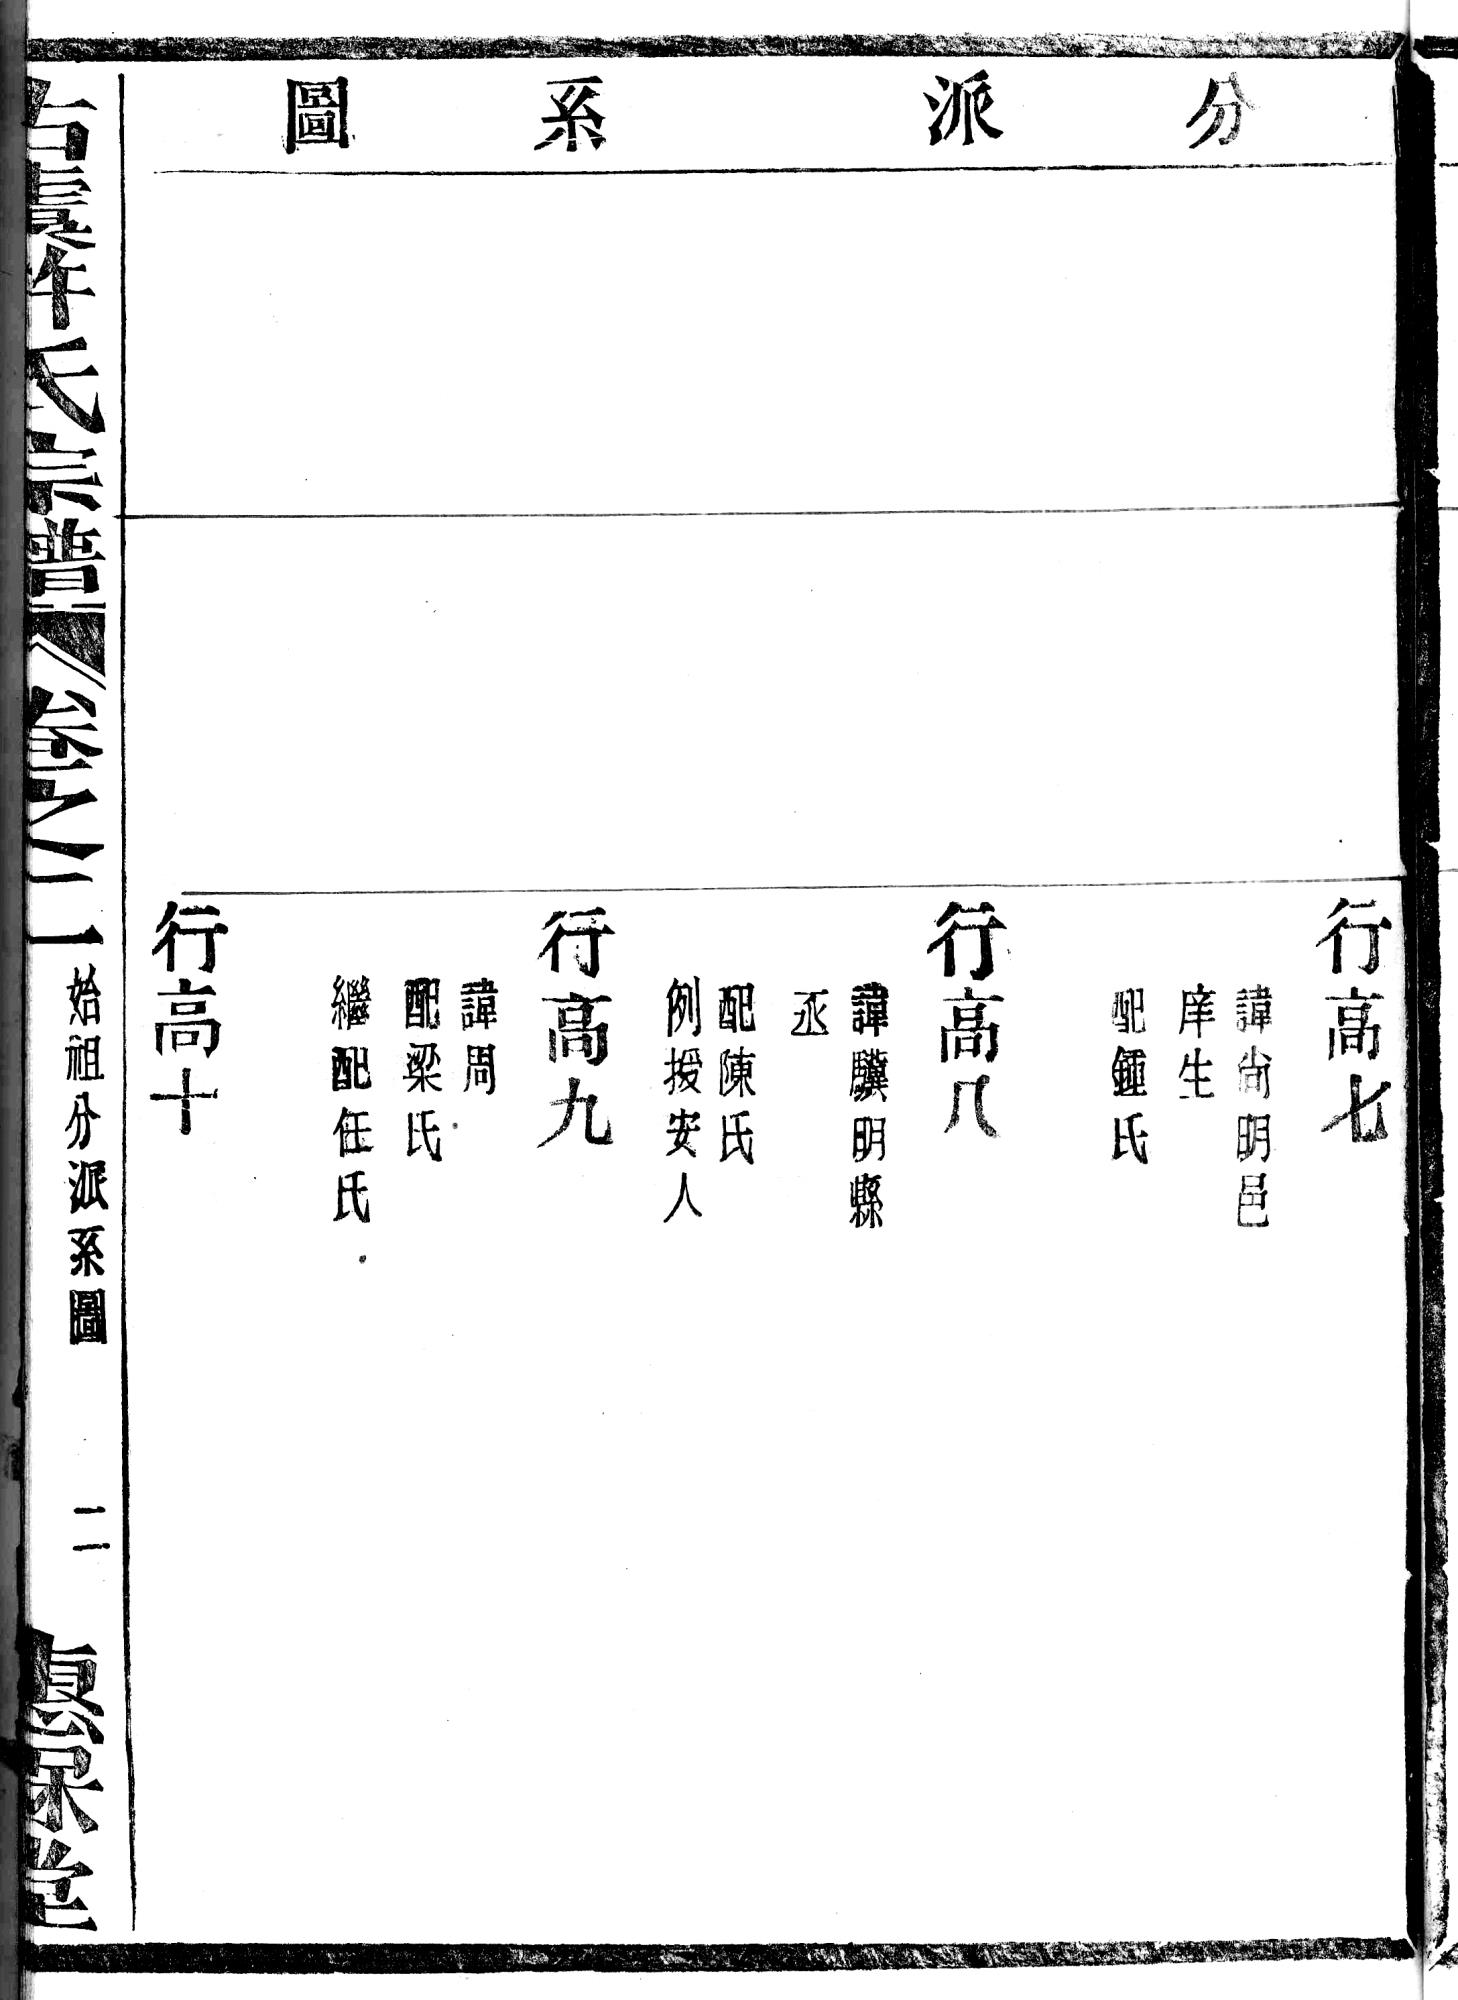 分派系圖
行高七
諱尚明邑
庠生
配鍾氏
行高八
諱驥明縣
丞
配陳氏
例授安人
行高九
諱周
配梁氏
繼配任氏
行高十
古虞許氏宗譜 卷之二
始祖分派系圖
二